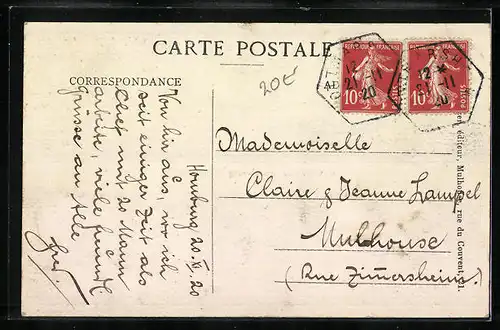 CARTE POSTALE
CORRESPONDANCE
20€
RÉPUBLIQUE FRANÇAISE
10c POSTES
RÉPUBLIQUE FRANÇAISE
10c POSTES
12
21-11
20
12 *
11
20
Homburg 20. XI. 20
Von hir aus, wor ich
seit einiger Zeit als
Chef mit 20 Mann
arbeite, viele
Grüsse an Alle
Fred.
Mademoiselle
Claire & Jeanne Lampel
Mulhouse
(Rue Zimersheim)
éditeur, Mulhouse, rue du Couvent